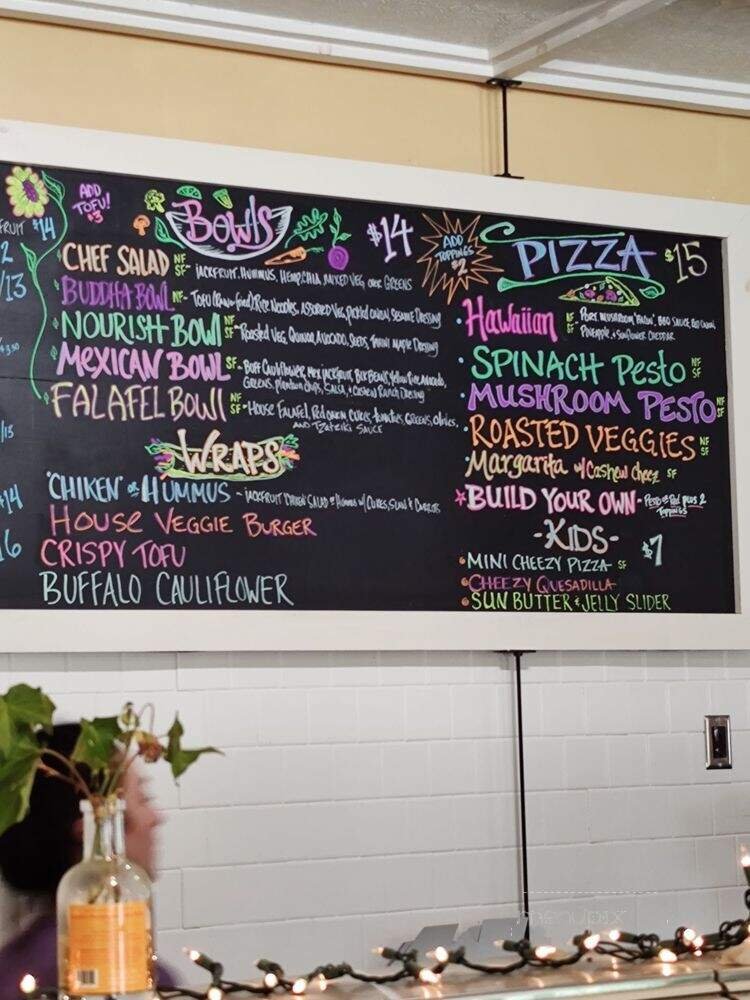 FRUIT $14
2
/13
$3.50
/13
$14
16
ADD
TOFU!
$3
BOWLS
$14
CHEF SALAD NF SF - JACKFRUIT, HUMMUS, HEMP, CHIA, MIXED VEG OVER GREENS
BUDDHA BOWL NF - TOFU RICE NOODLES, ASSORTED VEG, PICKLED ONION, SESAME DRESSING
NOURISH BOWL NF SF - ROASTED VEG, QUINOA, AVOCADO, SEEDS, TAHINI MAPLE DRESSING
MEXICAN BOWL SF - BUFF CAULIFLOWER, MEX JACKFRUIT, BLK BEANS, YELLOW RICE, AVOCADO,
GREENS, PLANTAIN CHIPS, SALSA, + CASHEW RANCH DRESSING
FALAFEL BOWL NF SF - HOUSE FALAFEL, RED ONION, CUKES, TOMATOES, GREENS, OLIVES,
AND TZATZIKI SAUCE
WRAPS
"CHIKEN" or HUMMUS - JACKFRUIT "CHIKEN" SALAD or HUMMUS w/ CUKES, & CARROTS
HOUSE VEGGIE BURGER
CRISPY TOFU
BUFFALO CAULIFLOWER
ADD
TOPPINGS
$2
PIZZA
$15
Hawaiian NF SF - PORK MUSHROOM "BACON", BBQ SAUCE, RED ONION,
PINEAPPLE, + SUNFLOWER CHEDDAR
SPINACH Pesto NF SF
MUSHROOM PESTO NF SF
ROASTED VEGGIES NF SF
Margarita w/ Cashew cheez SF
BUILD YOUR OWN - PESTO or Red plus 2
TOPPINGS
-KIDS-
$7
MINI CHEEZY PIZZA SF
CHEEZY QUESADILLA
SUN BUTTER & JELLY SLIDER
menupix